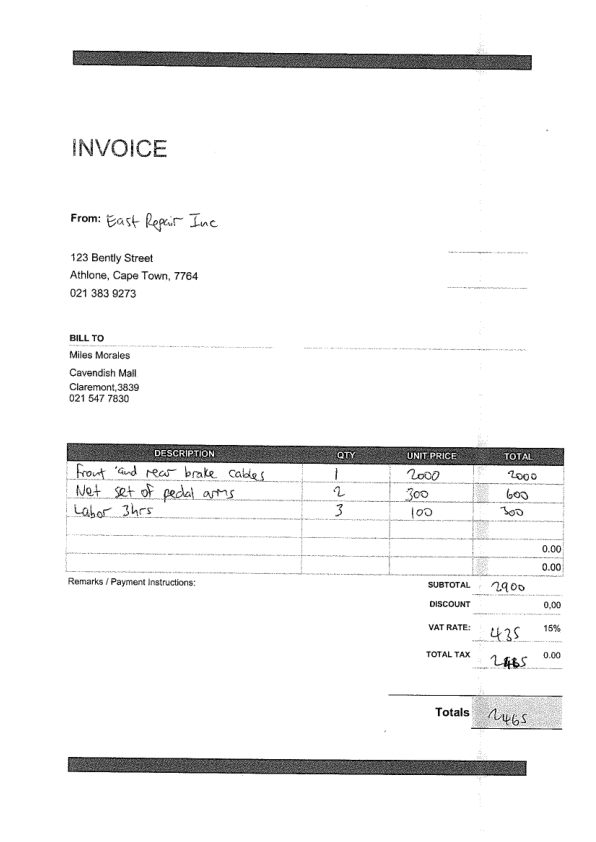 INVOICE
From: East Repair Inc
123 Bently Street
Athlone, Cape Town, 7764
021 383 9273
BILL TO
Miles Morales
Cavendish Mall
Claremont,3839
021 547 7830
DESCRIPTION QTY UNIT PRICE TOTAL
Front and rear brake cables 1 2000 2000
Net set of pedal arms 2 300 600
Labor 3hrs 3 100 300
0.00
0.00
Remarks / Payment Instructions:
SUBTOTAL 2900
DISCOUNT 0,00
VAT RATE: 435 15%
TOTAL TAX 2465 0.00
Totals 2465